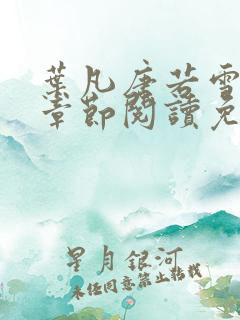 葉凡唐若雪
章節閱讀免
星月銀河
未经同意禁止转载